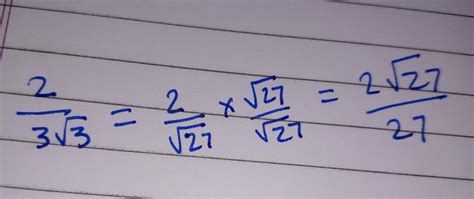 2/(3√3) = 2/√27 × √27/√27 = 2√27/27